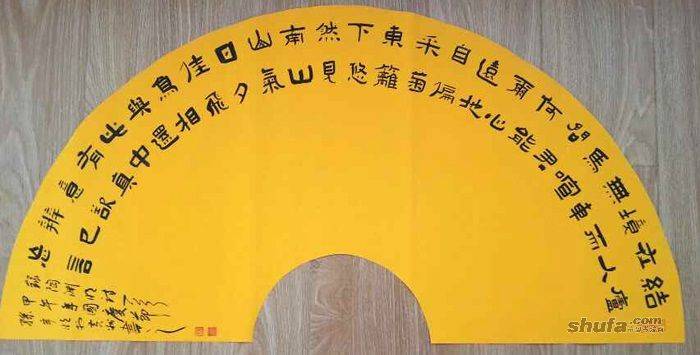 結廬
在人
境而
無車
馬喧
問君
何能
爾心
遠地
自偏
采菊
東籬
下悠
然見
南山
山氣
日夕
佳飛
鳥相
與還
此中
有真
意欲
辨已
忘言
錄陶渊明诗
甲午年國慶節
shufa.com